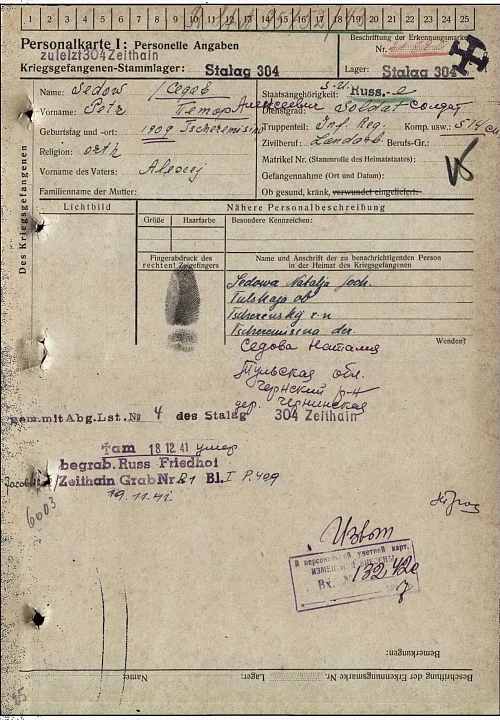 1 2 3 4 5 6 7 8 9 10 11 12 13 14 15 16 17 18 19 20 21 22 23 24 25
Personalkarte I: Personelle Angaben
zuletzt 304 Zeithain
Kriegsgefangenen-Stammlager: Stalag 304
Beschriftung der Erkennungsmarke
Nr.
Lager: Stalag 304
Des Kriegsgefangenen
Name: Sedow / Седов
Vorname: Potr Петор Алексеевич
Geburtstag und -ort: 1909 Tscheremisino
Religion: orth
Vorname des Vaters: Alexej
Familienname der Mutter:
Staatsangehörigkeit: Russ.
Dienstgrad: Soldat солдат
Truppenteil: Inf. Reg. Komp. usw.: 514 сп
Zivilberuf: Landarb. Berufs-Gr.:
Matrikel Nr. (Stammrolle des Heimatstaates):
Gefangennahme (Ort und Datum):
Ob gesund, krank, verwundet eingeliefert:
Lichtbild
Nähere Personalbeschreibung
Größe Haarfarbe Besondere Kennzeichen:
Fingerabdruck des
rechten! Zeigefingers
Name und Anschrift der zu benachrichtigenden Person
in der Heimat des Kriegsgefangenen
Sedowa Natalja
Tulskaja ob
Tschernskij r-n
Tscheremisina der.
Wenden!
Седова Наталия
Тульская обл.
Чернский р-н
дер.
gem. mit Abg. Lst. № 4 des Stalag 304 Zeithain
am 18 12 41 умер
begrab. Russ Friedhof
Zeithain Grab Nr 21 Bl. I P. 409
19.11.41.
6003
В персональной учетной карт.
ИЗМЕНЕНИЯ ВНЕСЕНЫ
Вх.
Bemerkungen:
Beschriftung der Erkennungsmarke Nr. Lager: Name: